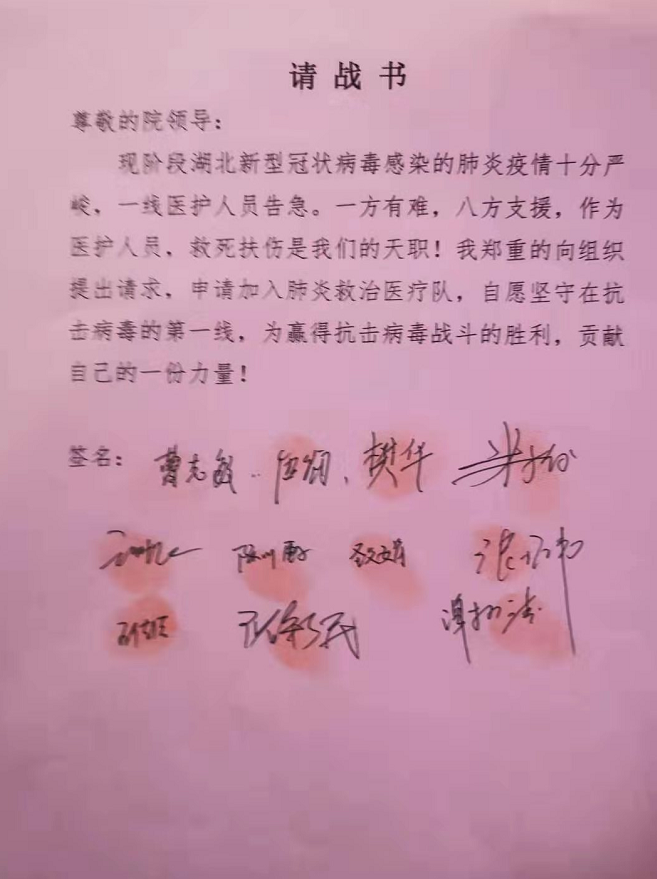 请战书
尊敬的院领导：
现阶段湖北新型冠状病毒感染的肺炎疫情十分严
峻，一线医护人员告急。一方有难，八方支援，作为
医护人员，救死扶伤是我们的天职！我郑重的向组织
提出请求，申请加入肺炎救治医疗队，自愿坚守在抗
击病毒的第一线，为赢得抗击病毒战斗的胜利，贡献
自己的一份力量！
签名： 樊华